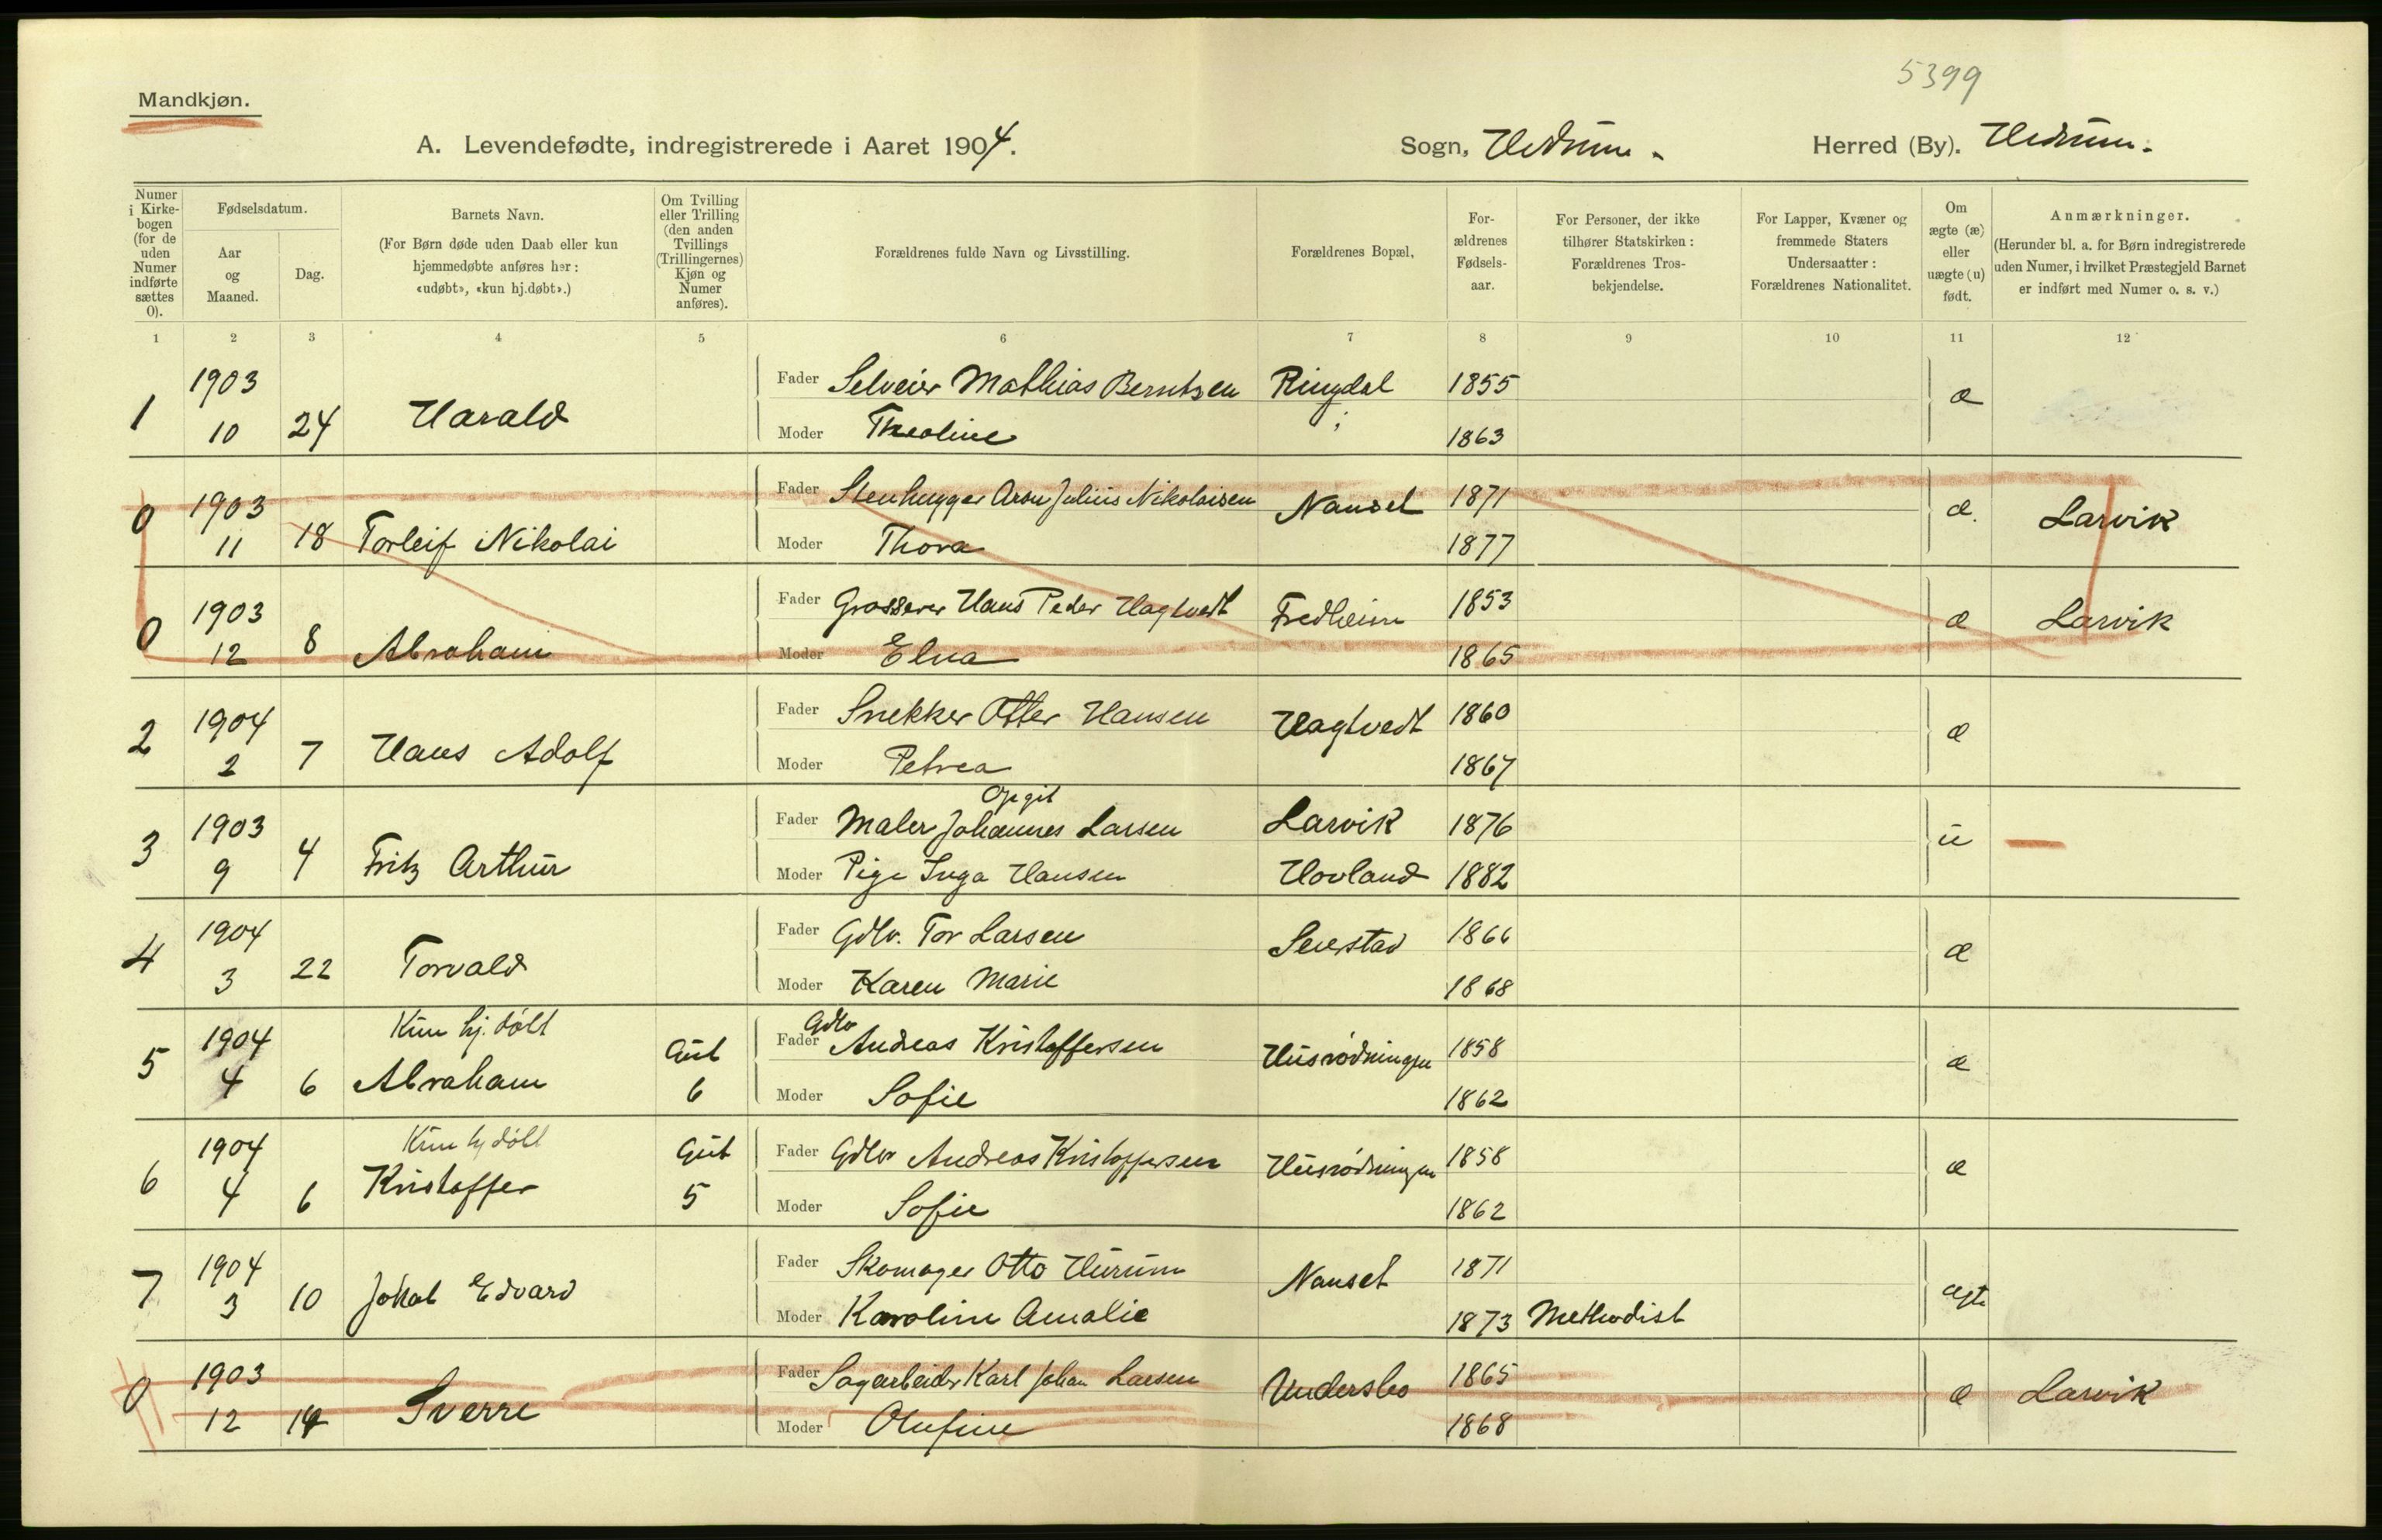 5399
Mandkjøn.
A. Levendefødte, indregistrerede i Aaret 1904. Sogn, Hedrum. Herred (By). Hedrum.
Numer i Kirkebogen (for de uden Numer indførte sættes 0).
Fødselsdatum.
Aar og Maaned.
Dag.
Barnets Navn.
(For Børn døde uden Daab eller kun hjemmedøbte anføres her: «udøbt», «kun hj.døbt».)
Om Tvilling eller Trilling (den anden Tvillings (Trillingernes) Kjøn og Numer anføres).
Forældrenes fulde Navn og Livsstilling.
Forældrenes Bopæl,
Forældrenes Fødselsaar.
For Personer, der ikke tilhører Statskirken: Forældrenes Trosbekjendelse.
For Lapper, Kvæner og fremmede Staters Undersaatter: Forældrenes Nationalitet.
Om ægte (æ) eller uægte (u) født.
Anmærkninger.
(Herunder bl. a. for Børn indregistrerede uden Numer, i hvilket Præstegjeld Barnet er indført med Numer o. s. v.)
1 2 3 4 5 6 7 8 9 10 11 12
1903 Fader Selveier Mathias Berntsen Ringdal 1855
1 10 24 Harald Moder Theoline 1863 æ
0 1903 Fader Stenhugger Aron Julius Nikolaisen Nanset 1871 æ. Larvik
11 18 Torleif Nikolai Moder Thora 1877
0 1903 Fader Grosserer Hans Peder Hagtvedt Fredheim 1853 æ Larvik
12 8 Abraham Moder Elna 1865
2 1904 Fader Snekker Otter Hansen Hagtvedt 1860 æ
2 7 Hans Adolf Moder Petrea 1867
Opgit
3 1903 Fader Maler Johannes Larsen Larvik 1876 u
9 4 Fritz Arthur Moder Pige Inga Hansen Hovland 1882
4 1904 Fader Gdbr. Tor Larsen Seierstad 1866 æ
3 22 Torvald Moder Karen Marie 1868
Kun hj. døbt Gdbr
5 1904 Gut Fader Andreas Kristoffersen Husrødningen 1858 æ
4 6 Abraham 6 Moder Sofie 1862
Kun hj døbt
6 1904 Gut Fader Gdbr Andreas Kristoffersen Husrødningen 1858 æ
4 6 Kristoffer 5 Moder Sofie 1862
7 1904 Fader Skomager Otto Hurum Nanset 1871 ægte
3 10 Jakob Edvard Moder Karoline Amalie 1873 Methodist
0 1903 Fader Sagarbeider Karl Johan Larsen Undersbo 1865 æ Larvik
12 14 Sverre Moder Olufine 1868